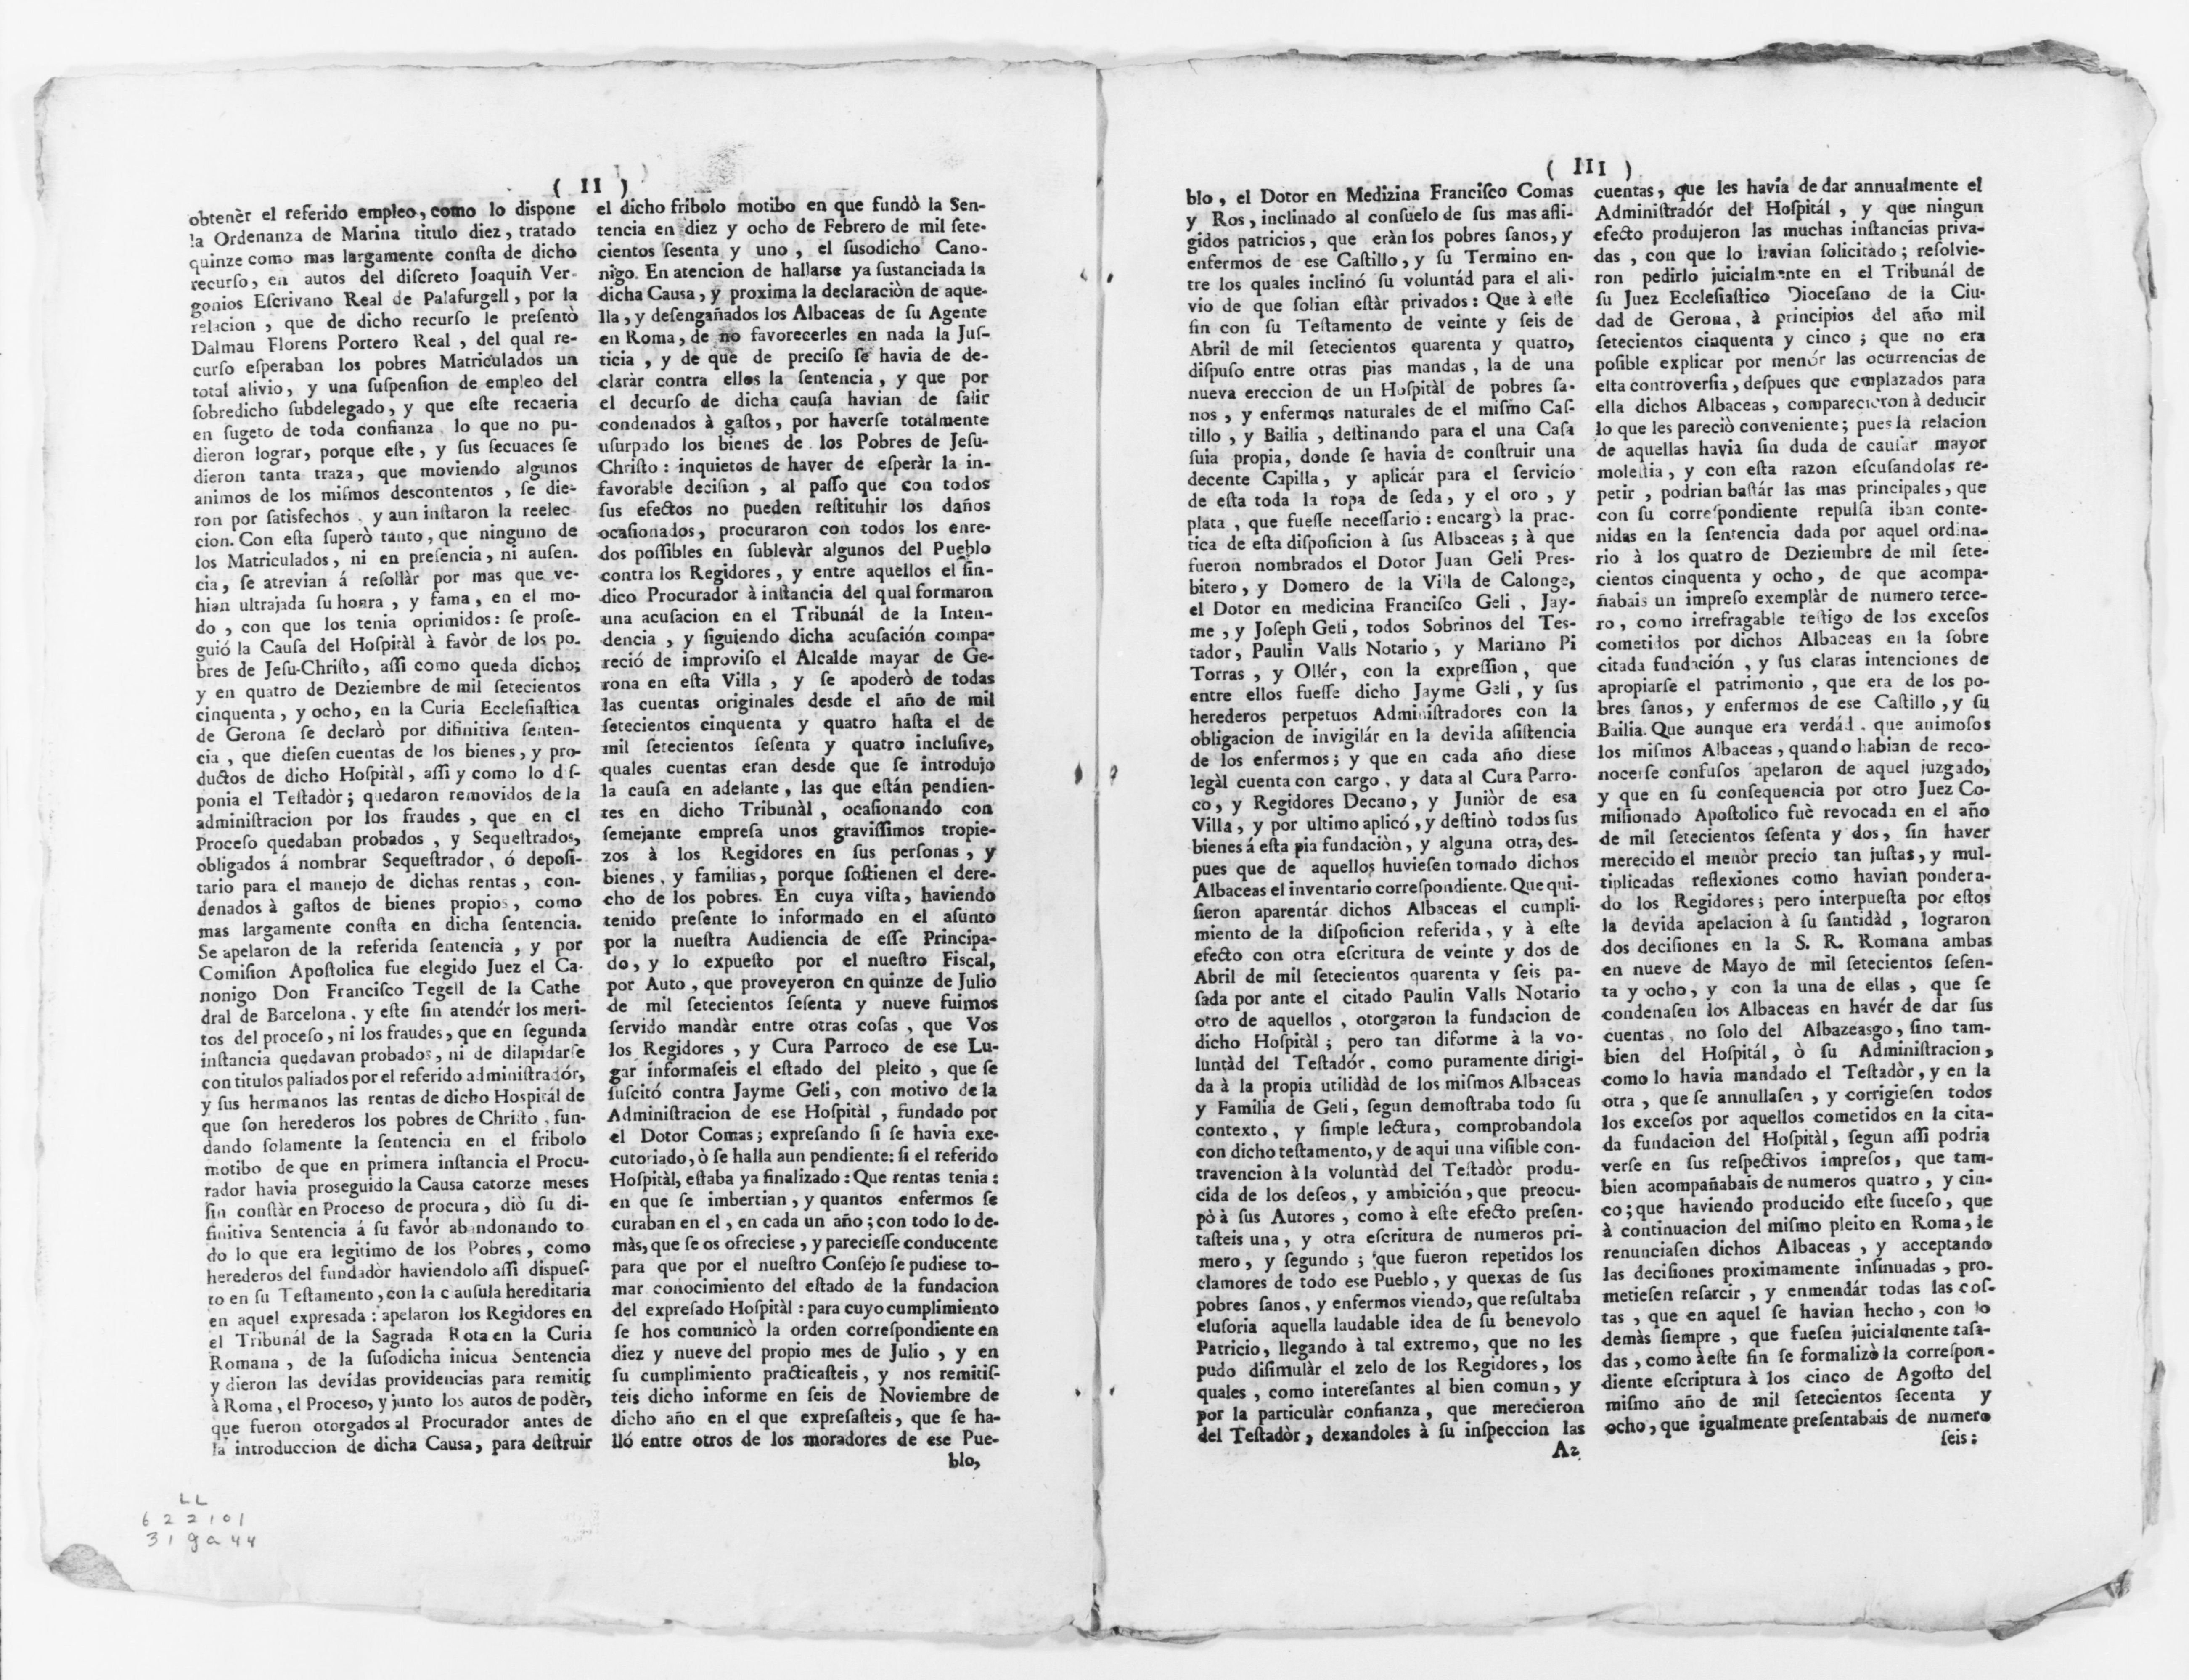 ( II )
obtenèr el referido empleo, como lo dispone
la Ordenanza de Marina titulo diez, tratado
quinze como mas largamente conſta de dicho
recurſo, en autos del diſcreto Joaquin Ver-
gonios Eſcrivano Real de Palafurgell, por la
relacion, que de dicho recurſo le preſentò
Dalmau Florens Portero Real, del qual re-
curſo eſperaban los pobres Matriculados un
total alivio, y una ſuſpenſion de empleo del
ſobredicho ſubdelegado, y que eſte recaeria
en ſugeto de toda confianza, lo que no pu-
dieron lograr, porque eſte, y ſus ſecuaces ſe
dieron tanta traza, que moviendo algunos
animos de los miſmos descontentos, ſe die-
ron por ſatisfechos, y aun inſtaron la reelec-
cion. Con eſta ſuperò tanto, que ninguno de
los Matriculados, ni en preſencia, ni auſen.
cia, ſe atrevian á reſollàr por mas que ve-
hian ultrajada ſu honra, y fama, en el mo-
do, con que los tenia oprimidos: se proſe-
guió la Cauſa del Hoſpitàl à favòr de los po.
bres de Jeſu-Chriſto, aſſi como queda dicho;
y en quatro de Deziembre de mil ſetecientos
cinquenta, y ocho, en la Curia Eccleſiaſtica
de Gerona ſe declarò por difinitiva ſenten-
cia, que dieſen cuentas de los bienes, y pro-
ductos de dicho Hoſpitàl, aſſi y como lo diſ-
ponia el Teſtadòr; quedaron removidos de la
adminiſtracion por los fraudes, que en el
Proceſo quedaban probados, y Sequeſtrados,
obligados á nombrar Sequeſtrador, ó depoſi-
tario para el manejo de dichas rentas, con-
denados à gaſtos de bienes propios, como
mas largamente conſta en dicha ſentencia.
Se apelaron de la referida ſentencia, y por
Comiſion Apoſtolica fue elegido Juez el Ca-
nonigo Don Franciſco Tegell de la Cathe
dral de Barcelona, y eſte ſin atendér los meri-
tos del proceſo, ni los fraudes, que en ſegunda
inſtancia quedavan probados, ni de dilapidarſe
con titulos paliados por el referido adminiſtradór,
y ſus hermanos las rentas de dicho Hospitál de
que ſon herederos los pobres de Chriſto, fun-
dando ſolamente la ſentencia en el fribolo
motibo de que en primera inſtancia el Procu-
rador havia proseguido la Cauſa catorze meses
ſin conſtàr en Proceſo de procura, diò ſu di-
finitiva Sentencia á ſu favòr abandonando to
do lo que era legitimo de los Pobres, como
herederos del fundadòr haviendolo aſſi diſpueſ-
to en ſu Teſtamento, con la clauſula hereditaria
en aquel expresada: apelaron los Regidores en
el Tribunál de la Sagrada Rota en la Curia
Romana, de la ſuſodicha inicua Sentencia
y dieron las devidas providencias para remitir
à Roma, el Proceso, y junto los autos de podèr,
que fueron otorgados al Procurador antes de
la introduccion de dicha Cauſa, para deſtruir
el dicho fribolo motibo en que fundò la Sen-
tencia en diez y ocho de Febrero de mil ſete-
cientos ſesenta y uno, el ſusodicho Cano-
nigo. En atencion de hallarse ya ſustanciada la
dicha Causa, y proxima la declaraciòn de aque-
lla, y deſengañados los Albaceas de ſu Agente
en Roma, de no favorecerles en nada la Juſ-
ticia, y de que de preciſo ſe havia de de-
claràr contra ellos la ſentencia, y que por
el decurſo de dicha cauſa havian de ſalir
condenados à gaſtos, por haverſe totalmente
uſurpado los bienes de los Pobres de Jeſu-
Chriſto: inquietos de haver de eſperàr la in-
favorable deciſion, al paſſo que con todos
ſus efectos no pueden reſtituhir los daños
ocaſionados, procuraron con todos los enre-
dos poſſibles en ſublevàr algunos del Pueblo
contra los Regidores, y entre aquellos el ſin-
dico Procurador à inſtancia del qual formaron
una acuſacion en el Tribunál de la Inten-
dencia, y ſiguiendo dicha acuſación compa-
reció de improviſo el Alcalde mayar de Ge-
rona en eſta Villa, y ſe apoderò de todas
las cuentas originales desde el año de mil
ſetecientos cinquenta y quatro haſta el de
mil ſetecientos ſeſenta y quatro incluſive,
quales cuentas eran desde que ſe introdujo
la cauſa en adelante, las que eſtán pendien-
tes en dicho Tribunàl, ocaſionando con
ſemejante empreſa unos graviſſimos tropie-
zos à los Regidores en ſus perſonas, y
bienes, y familias, porque ſoſtienen el dere-
cho de los pobres. En cuya viſta, haviendo
tenido preſente lo informado en el aſunto
por la nueſtra Audiencia de eſſe Principa-
do, y lo expueſto por el nueſtro Fiſcal,
por Auto, que proveyeron en quinze de Julio
de mil ſetecientos ſeſenta y nueve fuimos
ſervido mandàr entre otras coſas, que Vos
los Regidores, y Cura Parroco de ese Lu-
gar informaſeis el eſtado del pleito, que ſe
ſuſcitó contra Jayme Geli, con motivo de la
Adminiſtracion de ese Hoſpitàl, fundado por
el Dotor Comas; expreſando ſi ſe havia exe-
cutoriado, ò ſe halla aun pendiente: ſi el referido
Hoſpitàl, eſtaba ya finalizado: Que rentas tenia:
en que ſe imbertian, y quantos enfermos ſe
curaban en el, en cada un año; con todo lo de-
màs, que ſe os ofreciese, y pareciesſe conducente
para que por el nueſtro Conſejo ſe pudiese to-
mar conocimiento del eſtado de la fundacion
del expreſado Hoſpitàl: para cuyo cumplimiento
ſe hos comunicò la orden correſpondiente en
diez y nueve del propio mes de Julio, y en
ſu cumplimiento practicaſteis, y nos remitiſ-
teis dicho informe en ſeis de Noviembre de
dicho año en el que expreſaſteis, que ſe ha-
lló entre otros de los moradores de ese Pue-
blo,
LL
622101
319a44
( III )
blo, el Dotor en Medizina Franciſco Comas
y Ros, inclinado al conſuelo de ſus mas afli-
gidos patricios, que eràn los pobres ſanos, y
enfermos de ese Caſtillo, y ſu Termino en-
tre los quales inclinó ſu voluntád para el ali-
vio de que ſolian eſtàr privados: Que à eſte
fin con ſu Teſtamento de veinte y ſeis de
Abril de mil ſetecientos quarenta y quatro,
diſpuſo entre otras pias mandas, la de una
nueva ereccion de un Hoſpitàl de pobres ſa-
nos, y enfermos naturales de el miſmo Caſ-
tillo, y Bailia, deſtinando para el una Caſa
ſuia propia, donde ſe havia de conſtruir una
decente Capilla, y aplicár para el ſervicío
de eſta toda la ropa de ſeda, y el oro, y
plata, que fueſſe neceſſario: encargò la prac-
tica de eſta diſpoſicion à ſus Albaceas; à que
fueron nombrados el Dotor Juan Geli Pres-
bitero, y Domero de la Villa de Calonge,
el Dotor en medicina Franciſco Geli, Jay-
me, y Joſeph Geli, todos Sobrinos del Tes-
tador, Paulin Valls Notario, y Mariano Pi
Torras, y Ollér, con la expreſſion, que
entre ellos fueſſe dicho Jayme Geli, y ſus
herederos perpetuos Adminiſtradores con la
obligacion de invigilár en la devida aſiſtencia
de los enfermos; y que en cada año diese
legàl cuenta con cargo, y data al Cura Parro-
co, y Regidores Decano, y Juniòr de esa
Villa, y por ultimo aplicó, y deſtinò todos ſus
bienes á eſta pia fundaciòn, y alguna otra, des-
pues que de aquellos huvieſen tomado dichos
Albaceas el inventario correſpondiente. Que qui-
ſieron aparentár dichos Albaceas el cumpli-
miento de la diſpoſicion referida, y à eſte
efecto con otra eſcritura de veinte y dos de
Abril de mil ſetecientos quarenta y ſeis pa-
ſada por ante el citado Paulin Valls Notario
otro de aquellos, otorgaron la fundacion de
dicho Hoſpitàl; pero tan diforme à la vo-
luntàd del Teſtadór, como puramente dirigi-
da à la propia utilidàd de los miſmos Albaceas
y Familia de Geli, ſegun demoſtraba todo ſu
contexto, y ſimple lectura, comprobandola
con dicho teſtamento, y de aqui una viſible con-
travencion à la voluntàd del Teſtadòr produ-
cida de los deſeos, y ambición, que preocu-
pò à ſus Autores, como à eſte efecto preſen-
taſteis una, y otra eſcritura de numeros pri-
mero, y ſegundo; que fueron repetidos los
clamores de todo ese Pueblo, y quexas de ſus
pobres ſanos, y enfermos viendo, que reſultaba
eluſoria aquella laudable idea de ſu benevolo
Patricio, llegando à tal extremo, que no les
pudo diſimulàr el zelo de los Regidores, los
quales, como intereſantes al bien comun, y
por la particulàr confianza, que merecieron
del Teſtadòr, dexandoles à ſu inſpeccion las
A2
cuentas, que les havia de dar annualmente el
Adminiſtradór del Hoſpitál, y que ningun
efecto produjeron las muchas inſtancias priva-
das, con que lo havian ſolicitado; reſolvie-
ron pedirlo juicialmente en el Tribunál de
ſu Juez Eccleſiaſtico Dioceſano de la Ciu-
dad de Gerona, à principios del año mil
ſetecientos cinquenta y cinco; que no era
poſible explicar por menór las ocurrencias de
eſta controverſia, deſpues que emplazados para
ella dichos Albaceas, comparecieron à deducir
lo que les pareciò conveniente; pues la relacion
de aquellas havia ſin duda de cauſar mayor
moleſtia, y con eſta razon eſcuſandolas re-
petir, podrian baſtár las mas principales, que
con ſu correſpondiente repulſa iban conte-
nidas en la ſentencia dada por aquel ordina-
rio à los quatro de Deziembre de mil ſete-
cientos cinquenta y ocho, de que acompa-
ñabais un impreſo exemplàr de numero terce-
ro, como irrefragable teſtigo de los exceſos
cometidos por dichos Albaceas en la ſobre
citada fundación, y ſus claras intenciones de
apropiarſe el patrimonio, que era de los po-
bres ſanos, y enfermos de ese Caſtillo, y ſu
Bailia. Que aunque era verdád, que animoſos
los miſmos Albaceas, quando habian de reco-
nocerſe confuſos apelaron de aquel juzgado,
y que en ſu conſequencia por otro Juez Co-
miſionado Apoſtolico fuè revocada en el año
de mil ſetecientos ſeſenta y dos, ſin haver
merecido el menòr precio tan juſtas, y mul-
tiplicadas reflexiones como havian pondera-
do los Regidores; pero interpueſta por eſtos
la devida apelacion à ſu ſantidàd, lograron
dos deciſiones en la S. R. Romana ambas
en nueve de Mayo de mil ſetecientos ſeſen-
ta y ocho, y con la una de ellas, que ſe
condenaſen los Albaceas en havér de dar ſus
cuentas, no ſolo del Albazeasgo, ſino tam-
bien del Hoſpitál, ò ſu Adminiſtracion,
como lo havia mandado el Teſtadòr, y en la
otra, que ſe annullaſen, y corrigieſen todos
los exceſos por aquellos cometidos en la cita-
da fundacion del Hoſpitàl, ſegun aſſi podria
verſe en ſus reſpectivos impreſos, que tam-
bien acompañabais de numeros quatro, y cin-
co; que haviendo producido eſte ſuceſo, que
à continuacion del miſmo pleito en Roma, ſe
renunciaſen dichos Albaceas, y acceptando
las deciſiones proximamente inſinuadas, pro-
metieſen reſarcir, y enmendár todas las coſ-
tas, que en aquel ſe havian hecho, con lo
demàs ſiempre, que fueſen juicialmente taſa-
das, como à eſte fin ſe formalizò la correſpon-
diente eſcriptura à los cinco de Agoſto del
miſmo año de mil ſetecientos ſecenta y
ocho, que igualmente preſentabais de numero
ſeis: